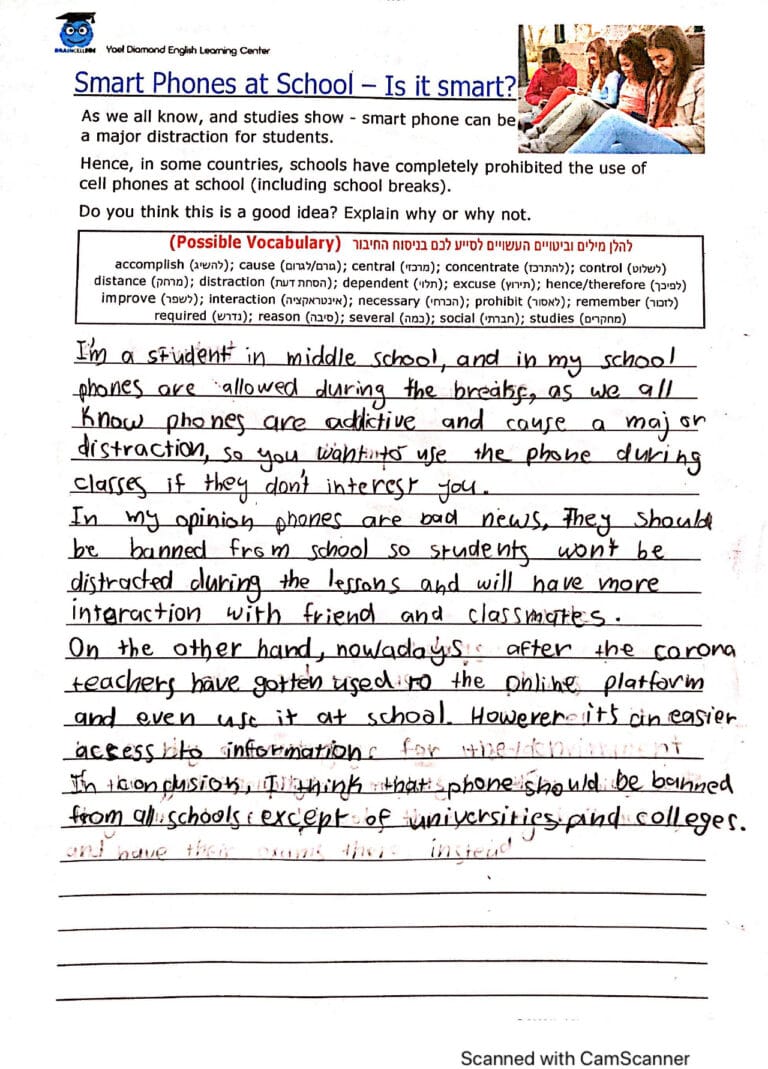 BRAINCELL
Yoel Diamond English Learning Center
Smart Phones at School – Is it smart?
As we all know, and studies show - smart phone can be
a major distraction for students.
Hence, in some countries, schools have completely prohibited the use of
cell phones at school (including school breaks).
Do you think this is a good idea? Explain why or why not.
(Possible Vocabulary) להלן מילים וביטויים העשויים לסייע לכם בניסוח החיבור
accomplish (להשיג); cause (גורם/לגרום); central (מרכזי); concentrate (להתרכז); control (לשלוט)
distance (מרחק); distraction (הסחת דעת); dependent (תלוי); excuse (תירוץ); hence/therefore (לפיכך)
improve (לשפר); interaction (אינטראקציה); necessary (הכרחי); prohibit (לאסור); remember (לזכור)
required (נדרש); reason (סיבה); several (כמה); social (חברתי); studies (מחקרים)
I'm a student in middle school, and in my school
phones are allowed during the breaks, as we all
know phones are addictive and cause a major
distraction, so you want to use the phone during
classes if they don't interest you.
In my opinion phones are bad news, They should
be banned from school so students won't be
distracted during the lessons and will have more
interaction with friend and classmates.
On the other hand, nowadays after the corona
teachers have gotten used to the online platform
and even use it at school. However it's an easier
access to information for the
In conclusion, I think that phone should be banned
from all schools except of universities and colleges.
and have their exams there instead
Scanned with CamScanner